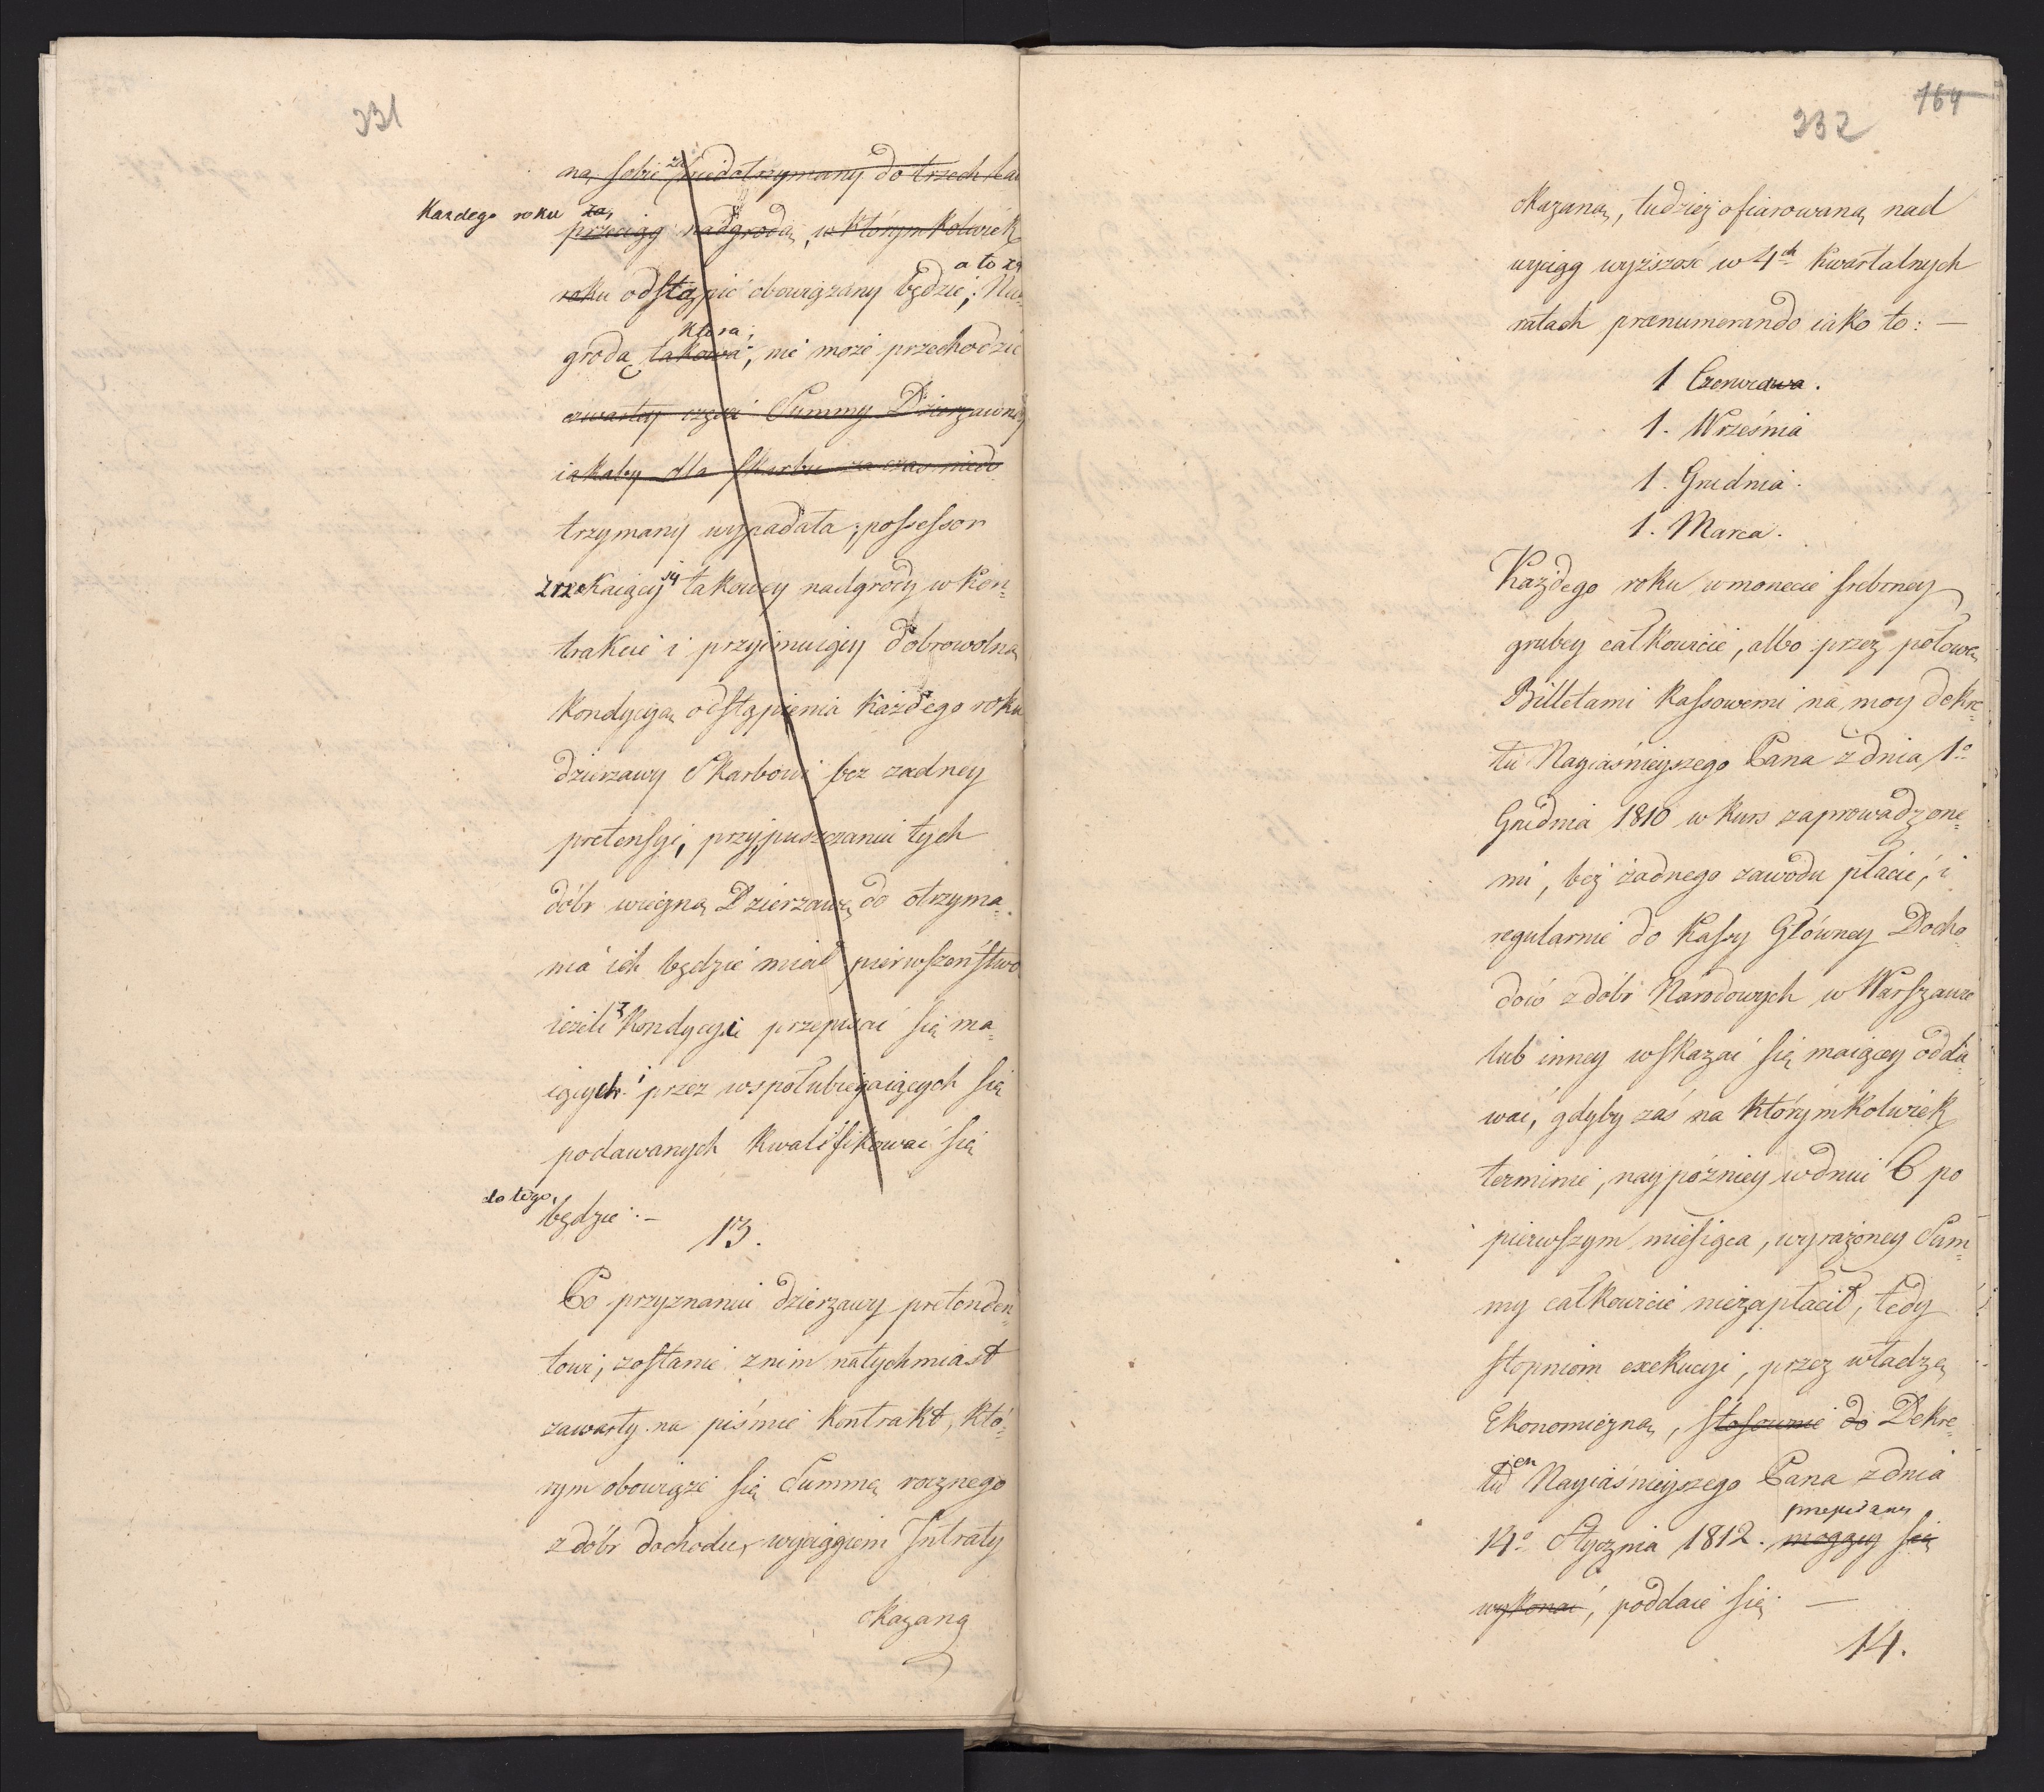 331
na sobie za niedotrzymany do trzech lat
Kazdego roku za
przeciąg nadgrodą, w którymkolwiek
a to za
roku odstąpić obowiązany będzie; Na=
która
groda takowa, nie może przechodzić
czwartey części Summy Dzierzawney
iakaby dla skarbu za czas niedo
trzymany wypadała; possessor
zrzekaiący się takowey nadgrody w kon=
trakcie i przyimuiący dobrowolną
Kondycyą odstąpienia każdego roku
dzierzawy Skarbowi bez zadney
pretensyi, przy puszczaniu tych
dóbr wieczną Dzierzawę do otrzyma=
nia ich będzie miał pierwszeństwo
ieżeli z Kondycyi przepisać się ma=
iących i przez wspołubiegaiących się
podawanych kwalifikować się
do tego
będzie. –
13.
Po przyznaniu dzierzawy pretenden=
towi, zostanie z nim natychmiast
zawarty na piśmie kontrakt, któ=
rym obowiąże się Summę rocznego
z dóbr dochodu, wyciągiem Intraty
okazaną
164
332
okazaną, tudzież ofiarowaną nad
wyciąg wyższość w 4ch kwartalnych
ratach prænumerando iako to: —
1 Czerwca.
1. Września
1. Grudnia.
1. Marca.
Każdego roku w monecie srebrney
grubey całkowicie, albo przez połowę
Billetami kassowemi na mocy dekre=
tu Nayiaśnieyszego Pana z dnia 1o
Grudnia 1810 w kurs zaprowadzone=
mi, bez żadnego zawodu płacić, i
regularnie do Kassy Główney Docho=
dów z dóbr Narodowych w Warszawie
lub inney wskazać się maiącey odda=
wać, gdyby zaś na którymkolwiek
terminie, naypóźniey w dniu 6 po
pierwszym miesiąca, wyrażoney Sum=
my całkowicie niezapłacił, tedy
stopniom exekucyi, przez władzę
Ekonomiczną, stosownie do Dekre=
em
tu Nayiaśnieyszego Pana z dnia
przepisanym
14o Stycznia 1812. mogącey się
wykonać, poddaie się. —
14.